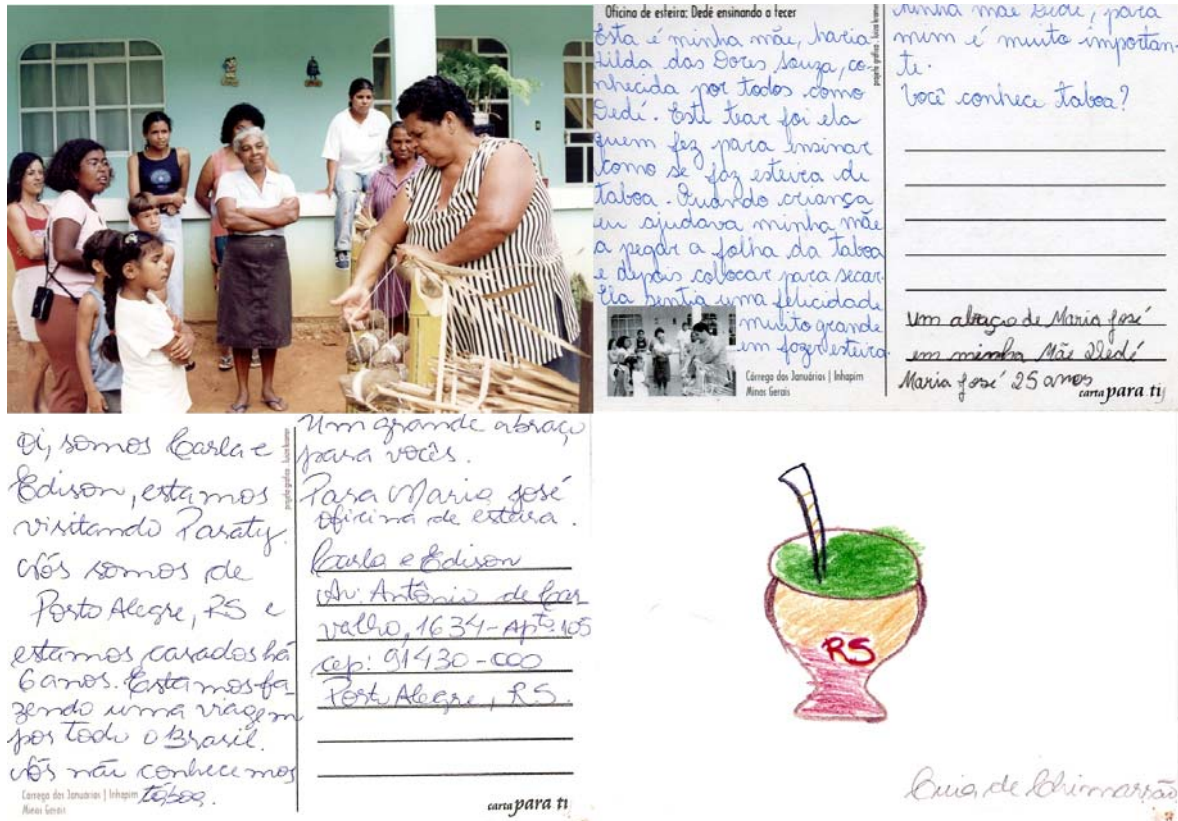 Oficina de esteira: Dedé ensinando a tecer
Esta é minha mãe, Maria
Ilda das Dores Souza, co-
nhecida por todos como
Dedé. Este tear foi ela
quem fez para ensinar
como se faz esteira de
taboa. Quando criança
eu ajudava minha mãe
a pegar a folha da taboa
e depois colocar para secar.
Ela sentia uma felicidade
muito grande
em fazer esteira.
Córrego dos Januários | Inhapim
Minas Gerais
projeto gráfico . lucas kramer
minha mãe Dedé, para
mim é muito importan-
te.
Você conhece taboa?
um abraço de Maria José
em minha Mãe Dedé
Maria José 25 anos
carta para ti
Oi, somos Carla e
Edison, estamos
visitando Paraty.
Nós somos de
Porto Alegre, RS e
estamos casados há
6 anos. Estamos fa
zendo uma viagem
por todo o Brasil.
Nós não conhecemos
táboa.
Córrego dos Januários | Inhapim
Minas Gerais
projeto gráfico . lucas kramer
Um grande abraço
para vocês.
Para Maria José
oficina de esteira.
Carla e Edison
Av: Antônio de Car
valho, 1634-Apto. 105
cep: 91430-000
Porto Alegre, RS.
carta para ti
RS
Cuia de Chimarrão